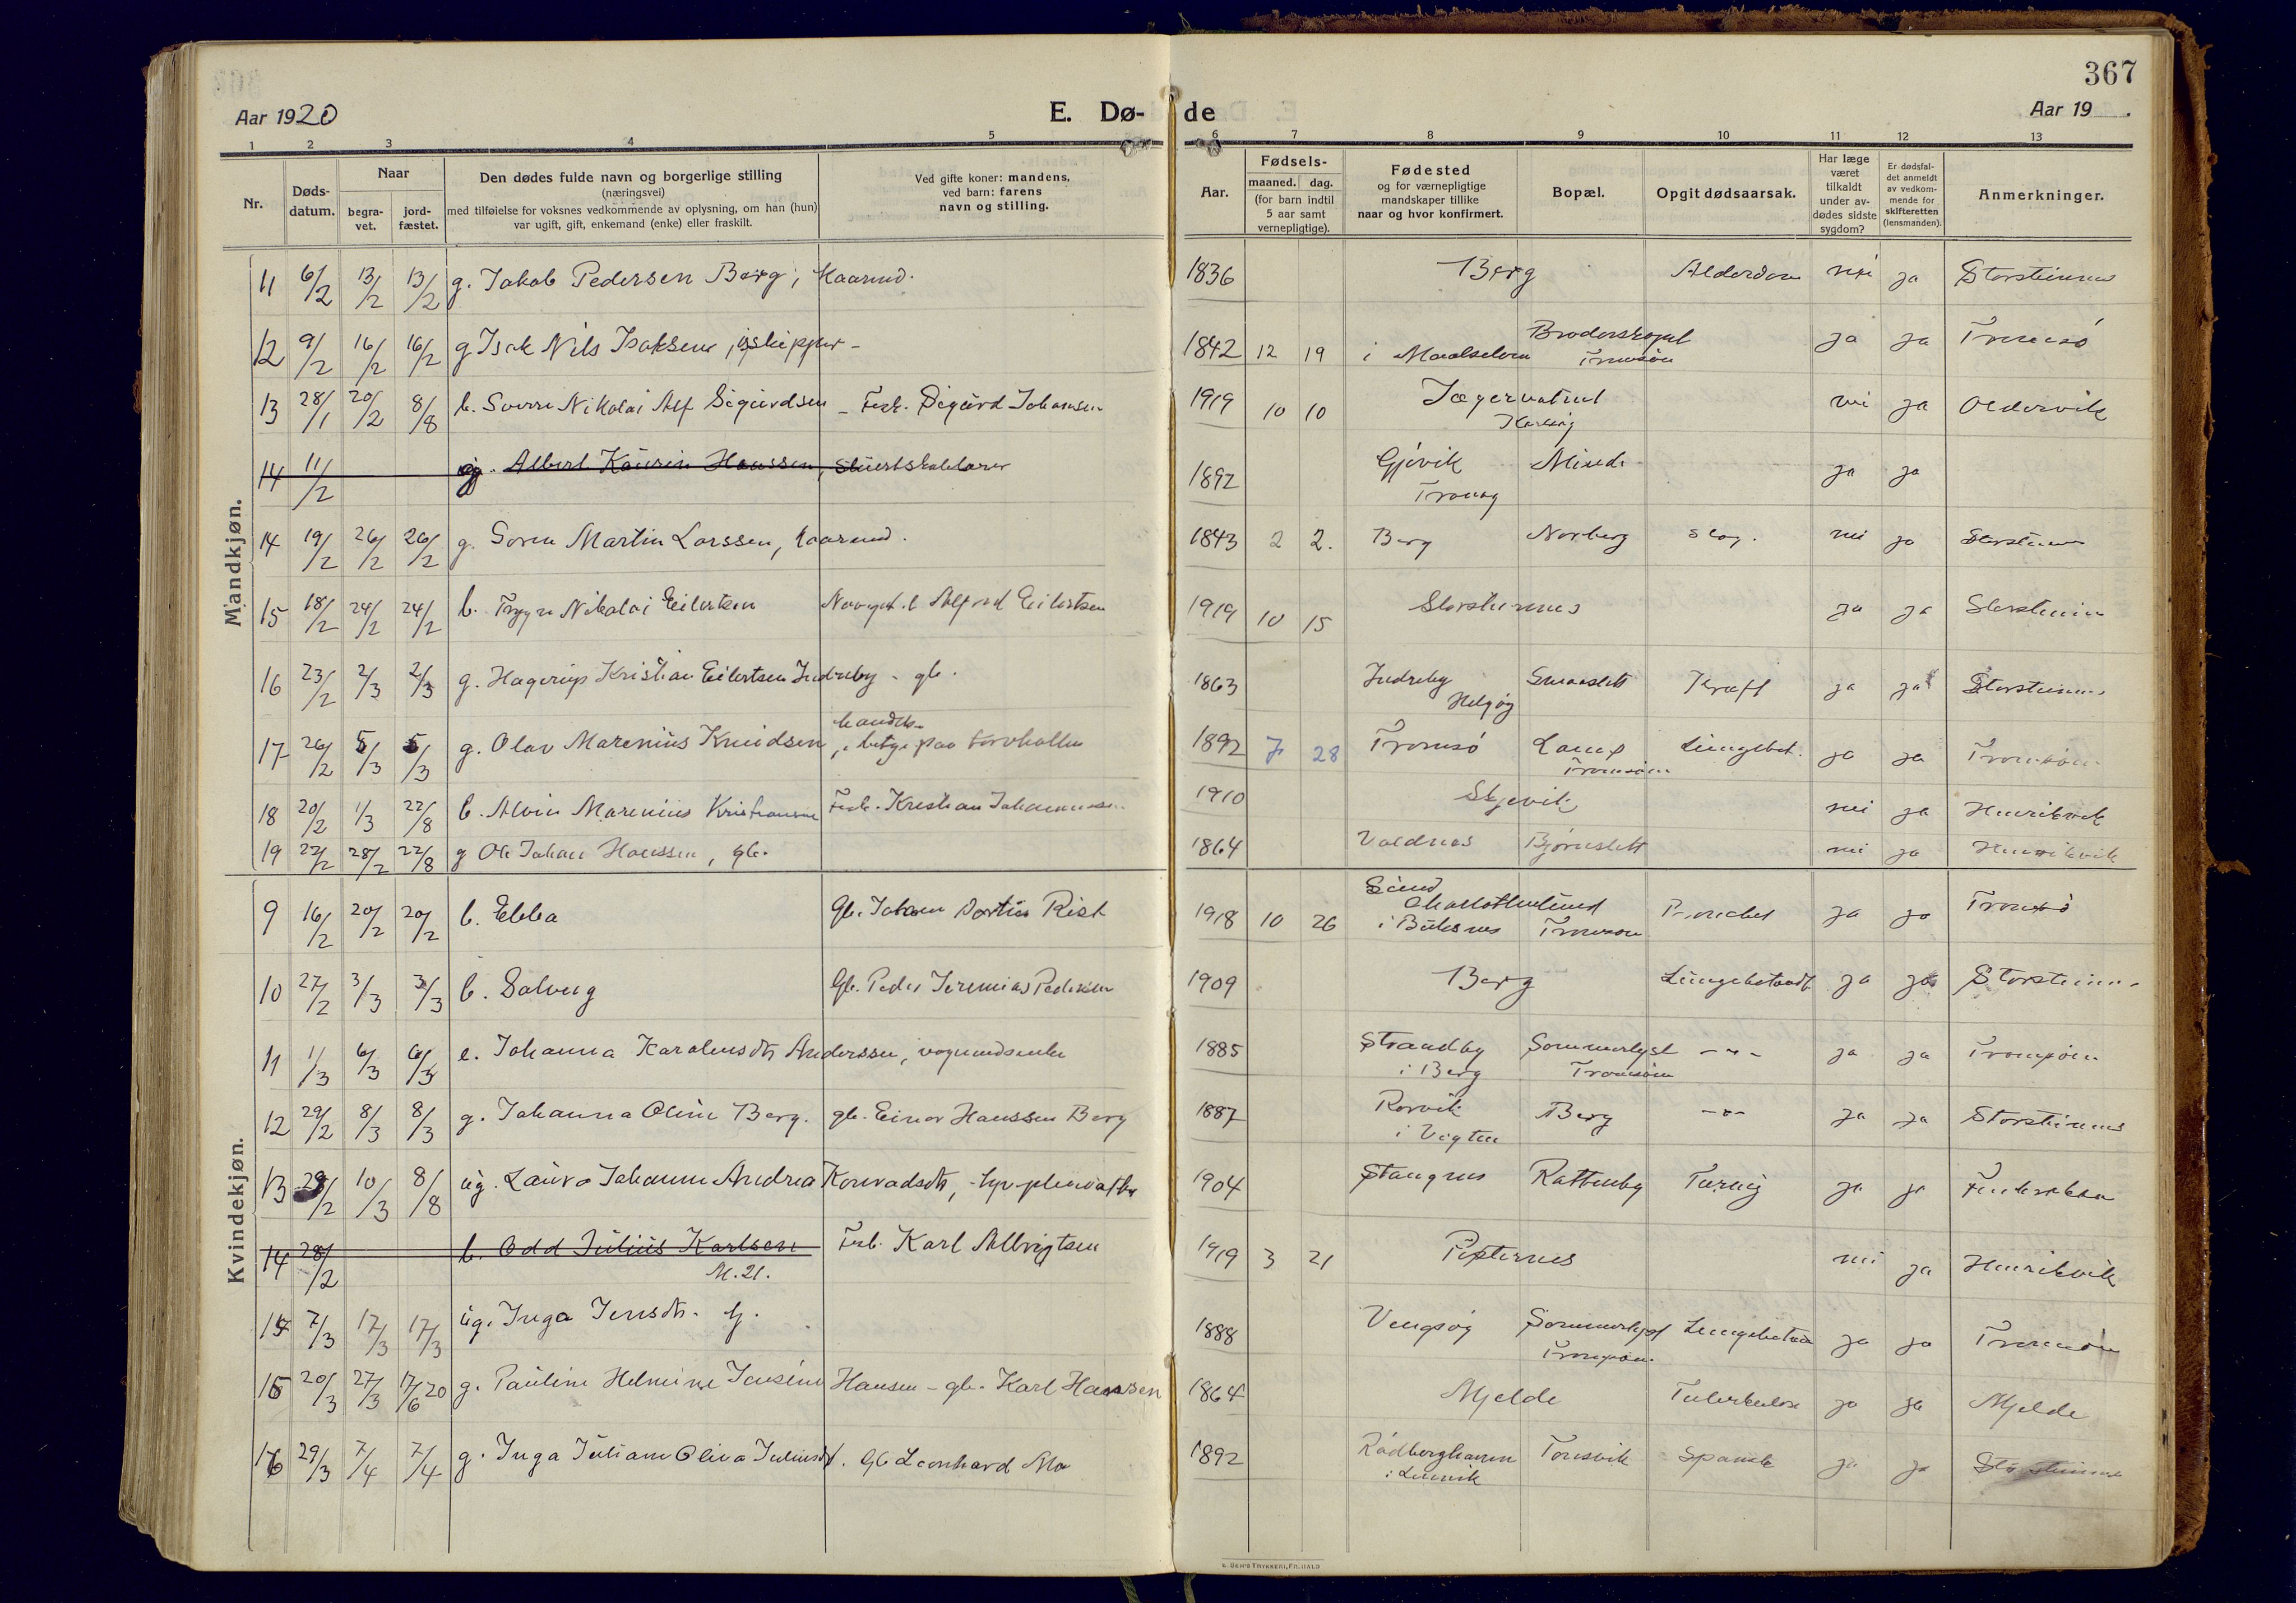 367
Aar 1920
E. Dø-
de
Aar 19 .
1 2 3 4 5 6 7 8 9 10 11 12 13
Nr.
Døds-
datum.
Naar
begra-
vet.
jord-
fæstet.
Den dødes fulde navn og borgerlige stilling
(næringsvei)
med tilføielse for voksnes vedkommende av oplysning, om han (hun)
var ugift, gift, enkemand (enke) eller fraskilt.
Ved gifte koner: mandens,
ved barn: farens
navn og stilling.
Aar.
Fødsels-
maaned. dag.
(for barn indtil
5 aar samt
vernepligtige).
Fødested
og for værnepligtige
mandskaper tillike
naar og hvor konfirmert.
Bopæl.
Opgit dødsaarsak.
Har læge
været
tilkaldt
under av-
dødes sidste
sygdom?
Er dødsfal-
det anmeldt
av vedkom-
mende for
skifteretten
(lensmanden).
Anmerkninger.
Mandkjøn.
11 6/2 13/2 13/2 g. Jakob Pedersen Berg, Kaarmd. 1836 Berg Alderdom nei ja Storsteinnes
12 9/2 16/2 16/2 g Isak Nils Isaksen, isskipper 1842 12 19 i Maalselven Broderskapet Tromsøen ja ja Tromsø
13 28/1 20/2 8/8 b. Sverre Nikolai Alf Sigurdsen - Fisk. Sigurd Johansen 1919 10 10 Jægervatnet Karlsøy nei ja Oldervik
14 11/2 ug. Albert Kaurin Hanssen, 1892 Gjøvik Minde ja ja
14 19/2 26/2 26/2 g. Soren Martin Larssen, kaarmd. 1843 2 2. Berg Norberg slag. nei ja Storsteinnes
15 18/2 24/2 24/2 b. Trygve Nikolai Eilertsen Alfred Eilertsen 1919 10 15 Storsteinnes ja ja Storsteinnes
16 23/2 2/3 2/3 g. Hagerup Kristian Eilertsen Indreby - gb. 1863 Indreby Helgøy Smaaslett Kræft ja ja Storsteinnes
17 26/2 5/3 5/3 g. Olav Marenius Knudsen, 1892 7 28 Tromsø Tromsøen Lungebet. ja ja Tromsøen
18 20/2 1/3 22/8 b. Alvin Marenius Kristiansen Fisk. Kristian Johannessen 1910 Skjevik nei ja Henrikvik
19 22/2 28/2 22/8 g Ole Johan Hanssen, gb. 1864 Valdnes Bjørnslett nei ja Henrikvik
Kvindekjøn.
9 16/2 20/2 20/2 b. Ebba Gb. Johan Rist 1918 10 26 Sund i Buksnes Charlottenlund Tromsøen ja ja Tromsø
10 27/2 3/3 3/3 b. Solveig Gb. Peder Jeremias Pedersen 1909 Berg Lungebetændt ja ja Storsteinnes
11 1/3 6/3 6/3 e. Johanna Karolensdtr Anderssen, vognmdsenke 1885 Strandby i Berg Sommerlyst Tromsøen -"- ja ja Tromsøen
12 29/2 8/3 8/3 g. Johanna Oline Berg. gb. Einar Hanssen Berg 1887 Rørvik i Vigten Berg -"- ja ja Storsteinnes
13 29/2 10/3 8/8 ug. Laura Johanne Andrea Konradsdtr, 1904 Stangnes Rottenby Tæring ja ja
14 28/2 b. Odd Julius Karlsen Fisk. Karl Albrigtsen 1919 3 21 nei ja Henrikvik
M. 21.
14 7/3 17/3 17/3 ug. Inga Jensdtr. tj. 1888 Vengsøy Sommerlyst Tromsøen Lungebetæn ja ja Tromsøen
15 20/3 27/3 17/6 20 g. Pauline Helmine Jensine Hansen - gb. Karl Hanssen 1864 Mjelde Tuberkulose ja ja Mjelde
16 29/3 7/4 7/4 g. Inga Juliane Oliva Juliusdt. Gb Leonhard Mo 1892 Rødberghavn i Lenvik Tonsvik Spansk ja ja Storsteinnes